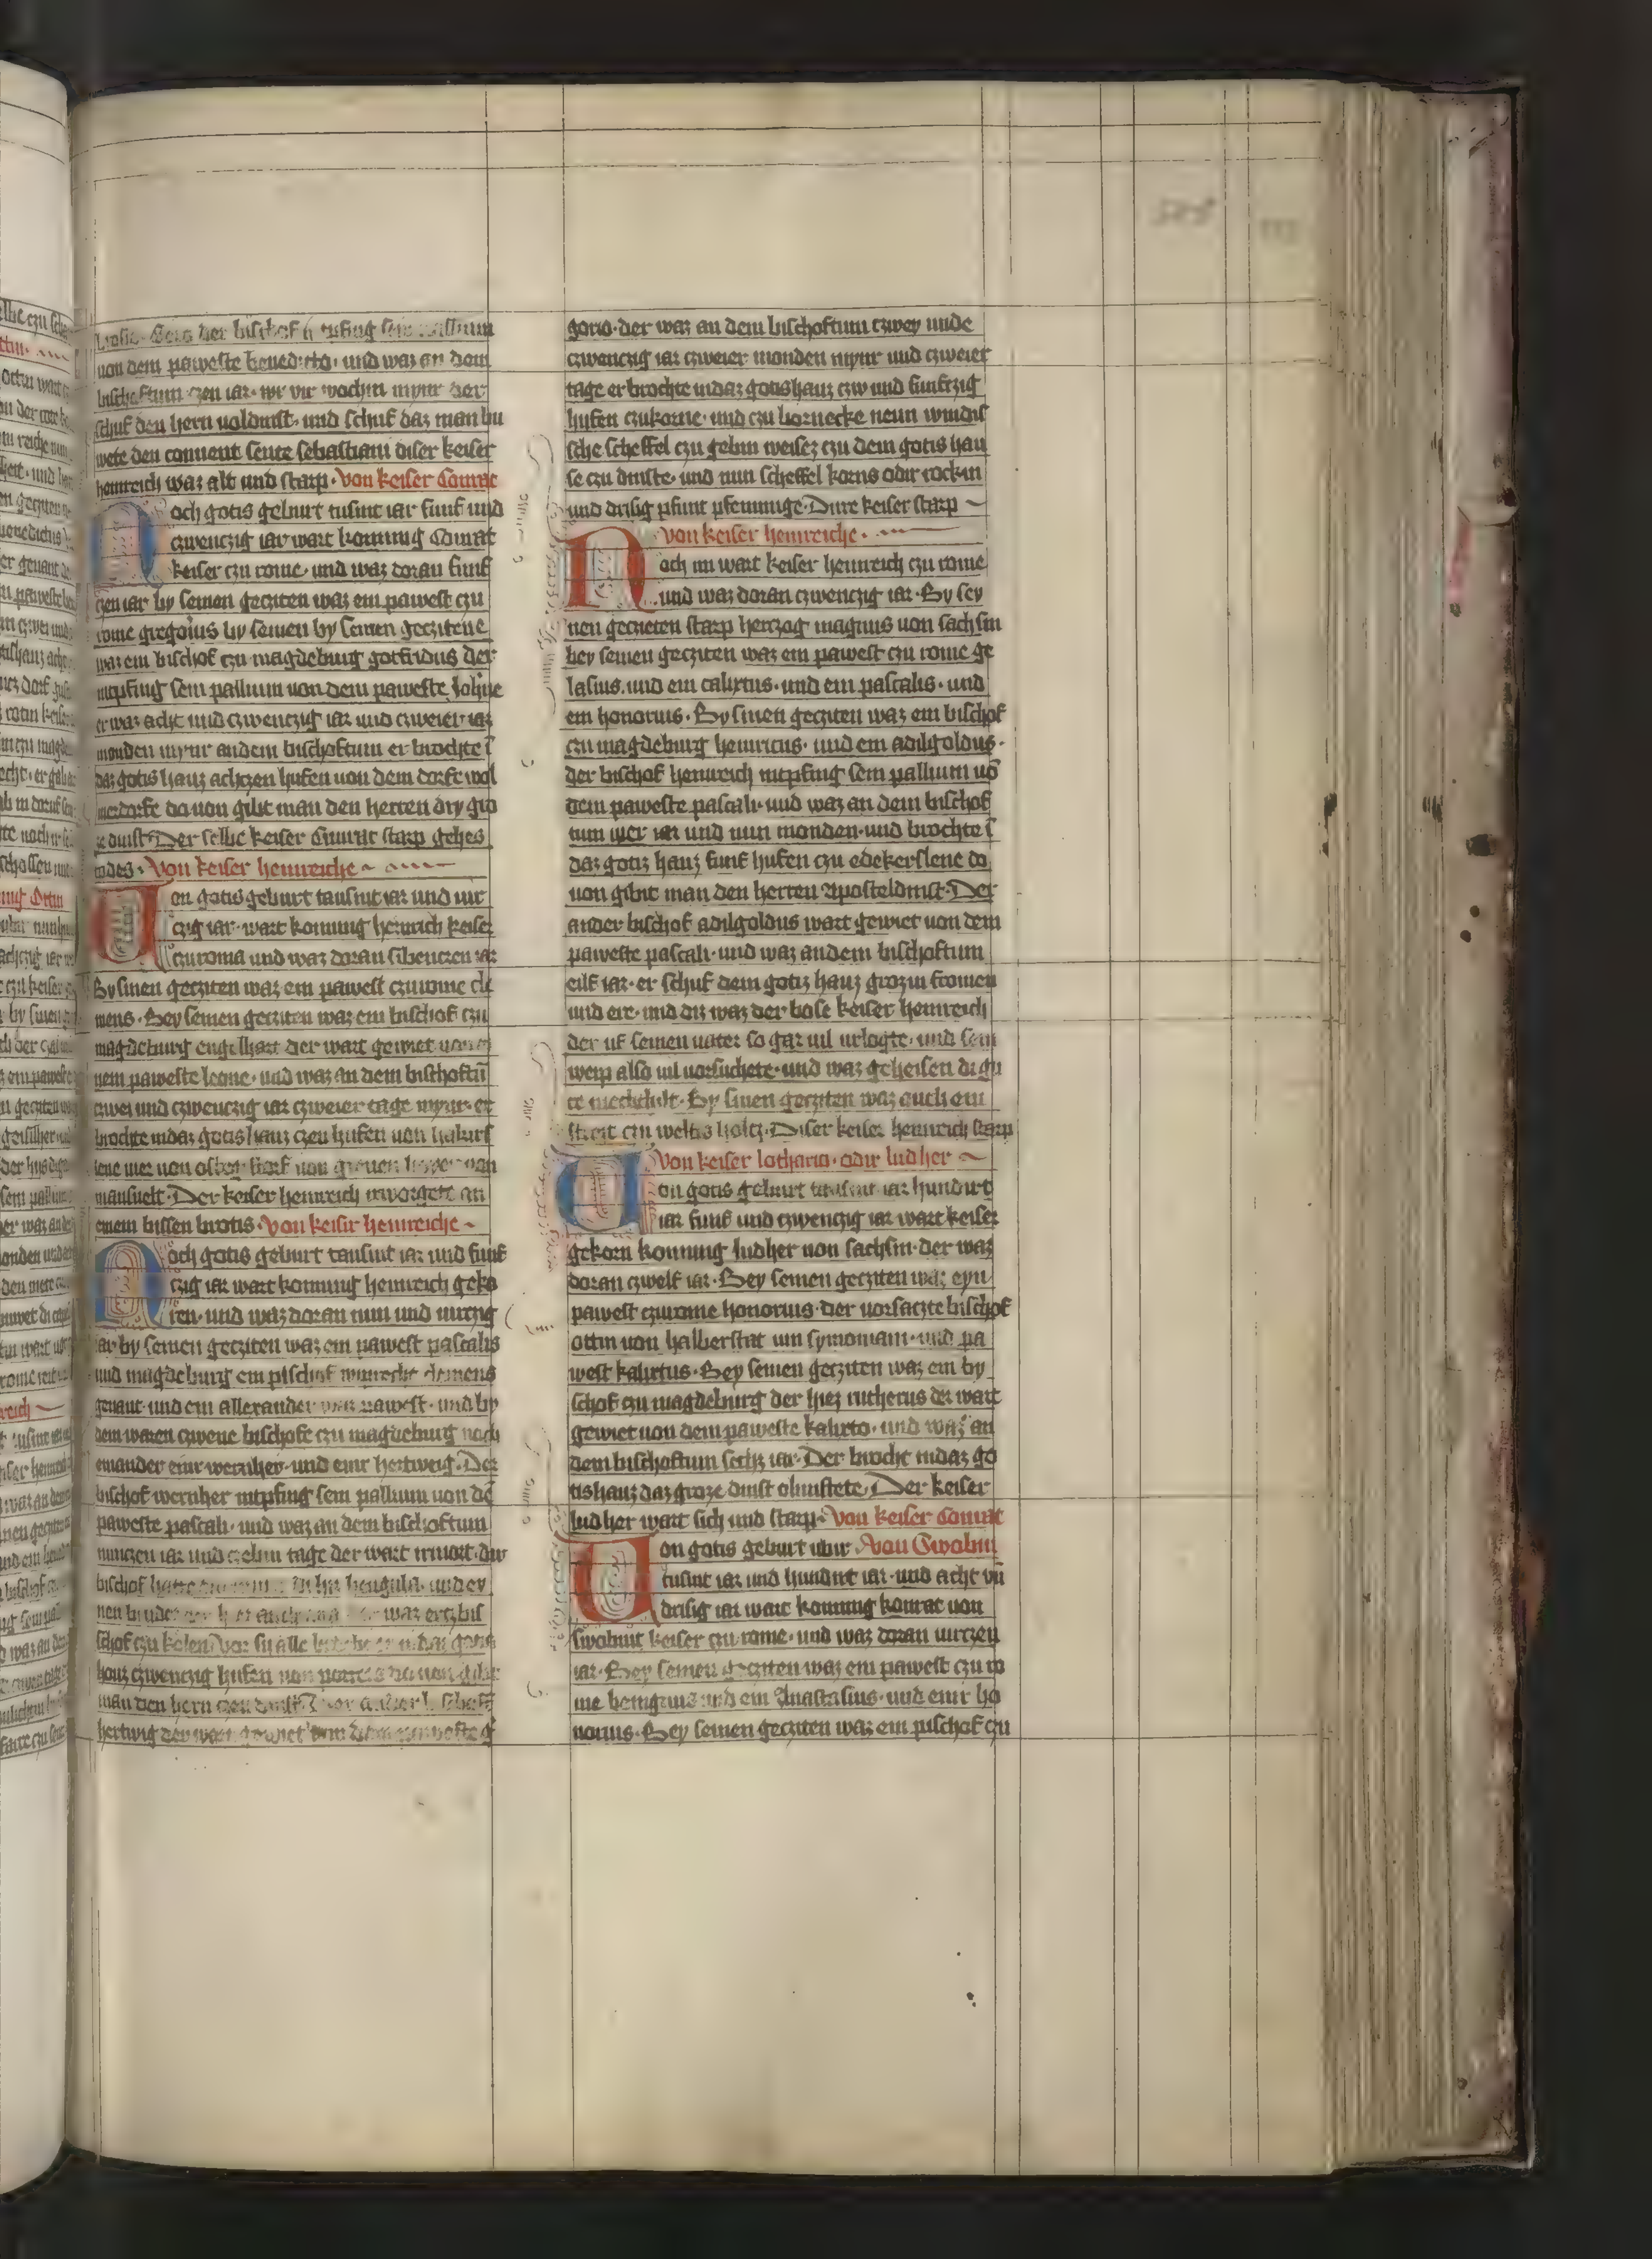 der bischof
von dem paweste benedicto · und waz an dem
bischoftum czen iar · wir vir wochin mynr der
schuf den hern voldinst · und schuf daz man bu
wete den convent sente sebastiani diser keiser
heinreich waz alt und starp · Von keiser Conrat
Noch gotis geburt tusint iar funf und
czwenczig iar wart konnig Conrat
keiser czu rome · und waz doran funf
czen iar by seinen gecziten waz ein pawest czu
rome gregorius by seinen by seinen geczitene
waz ein bischof czu magdeburg gotfridus der
intpfing sein pallium von dem paweste Johñe
er waz acht und czwenczig iar und czweier iar
monden mynr an dem bischoftum er brochte ĩ
daz gotis hauz achczen hufen von dem dorfe wol
merdorfe do von gibt man den herren dry gro
ze dinst Der selbe keiser Cunrat starp gehes
todes · Von keiser heinreiche ~
Von gotis geburt tausint iar und vir
czig iar · wart konnig heinrich keiser
czu roma und waz doran sibenczen iar
By sinen geczeiten waz ein pawest czu rome cle
mens · Bey seinen gecziten waz ein bischof czu
magdeburg engilhart der wart gewiet von ei
nem paweste leone · und waz an dem bischoftũ
czwei und czwenczig iar czweier tage mynr · er
brochte in daz gotis hauz czen hufen von
lene vier von von
mansvelt · Der keiser heinreich irworgete an
einem bissen brotis · Von keisir heinreiche ~
Noch gotis geburt tausint iar und funf
czig iar wart konnig heinreich geko
ren · und waz doran nun und virczig
iar by seinen geczeiten waz ein pawest pascalis
und magdeburg ein pischof clemens
genant · und ein allexander waz pawest · und by
dem waren czwene bischofe czu magdeburg noch
einander einr wernher · und einr hertweig · Der
bischof wernher intpfing sein pallium von dẽ
paweste pascali · und waz an dem bischoftum
nunczen iar und czehen tage der wart irmort · dir
bischof hatte und ey
nen bruder der waz erczbis
schof czu kolen in daz gotis
hauz czwenczig hufen von do von gibt
man den hern czen dinst Der ander bischof
hertwig der wart gewiet von dem paweste g
gorio · der waz an dem bischoftum czwey unde
czwenczig iar czweier monden mynr und czweier
tage er brochte in daz gotishauz czw und funfczig
hufen czu korne · und czu bornecke neun windis
sche scheffel czu gebin weisez czu dem gotis hau
se czu dinste · und nun scheffel korns odir rockin
und drisig pfunt pfennige · Dire keiser starp ~
Von keiser heinreiche ·
Noch im wart keiser heinreich czu rome
und waz doran czwenczig iar · By sey
nen geczieten starp herczog magnus von sachsin
bey seinen gecziten waz ein pawest czu rome ge
lasius · und ein calixtus · und ein pascalis · und
ein honorius · By sinen geczeiten waz ein bischof
czu magdeburg heinricus · und ein adilgoldus ·
der bischof heinreich intpfing sein pallium võ
dem paweste pascali · und waz an dem bischof
tum vier iar und nun monden · und brochte ĩ
daz gotiz hauz funf hufen czu edekerslene do
von gibit man den herren Aposteldinst · Der
ander bischof adilgoldus wart gewiet von dem
paweste pascali · und waz an dem bischoftum
eilf iar · er schuf dem gotiz hauz grozin fromen
und ere · und diz waz der bose keiser heinreich
der uf seinen vater so gar vil urlogte · und sein
weip also vil vorsuchete · und waz geheisen di gu
te mechthilt · By sinen geczeiten waz auch ein
streit czu welfis holcz · Diser keiser heinreich starp
Von keiser lothario · odir ludher ~
Von gotis geburt tausint iar hundirt
iar funf und czwenczig iar wart keiser
gekorn konning ludher von sachsin · der waz
doran czwelf iar · Bey seinen geczeiten waz eyn
pawest czu rome honorius · der vorsaczte bischof
ottin von halberstat um symoniam · und pa
west kalixtus · Bey seinen geczeiten waz ein by
schof czu magdeburg der hiez rutherus der wart
gewiet von dem paweste kalixto · und waz an
dem bischoftum sechz iar · Der brocht in daz go
tishauz daz groze dinst obinstete · Der keiser
ludher wart sich und starp · Von keiser Conrat
Von gotis geburt ubir · Von Swobin
tusint iar und hundirt iar · und acht vñ
drisig iar wart konnig konrat von
swobint keiser czu rome · und waz doran virczen
iar · Bey seinen geczeiten waz ein pawest czu ro
me benignius und ein Anastasius · und einr ho
norius · Bey seinen geczeiten waz ein pischof czu